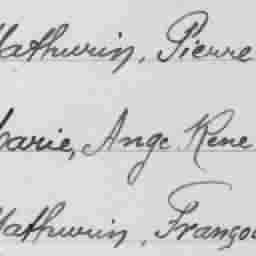 Mathurin, Pierre
Marie, Ange Rene
Mathurin, Françoi